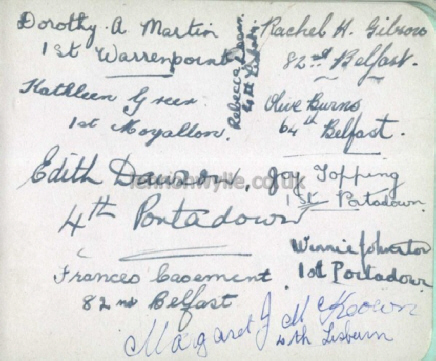 Dorothy. A Martin
1st Warrenpoint
Kathleen Greer
1st Moyallon.
Rebecca
4th Lisburn.
Rachel H. Gilroos
82nd Belfast.
Olive Burns
64th Belfast.
Edith Dawson,
4th Portadown
Joy Topping
1st Portadown.
Winnie Johnston
1st Portadown
Frances Casement
82nd Belfast
Margaret J McKeown
4th Lisburn
lennonwylie.co.uk